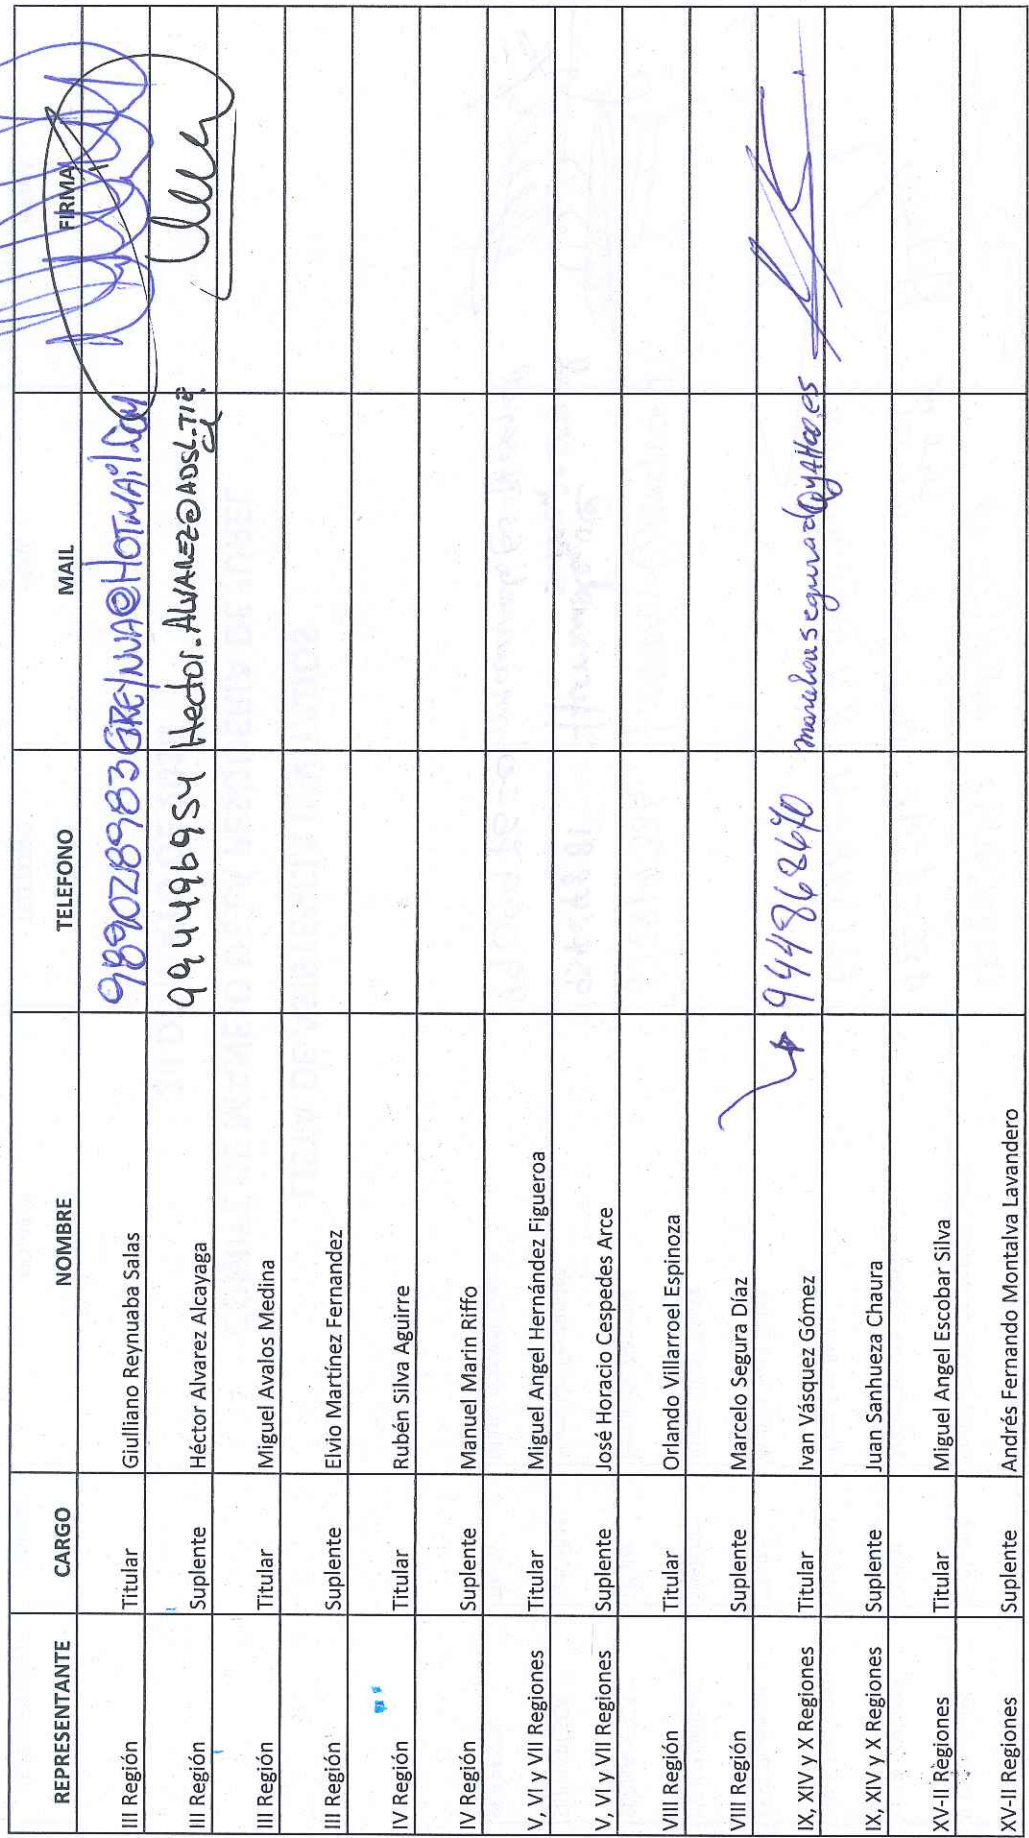 REPRESENTANTE CARGO NOMBRE TELEFONO MAIL FIRMA
III Región Titular Giulliano Reynuaba Salas 989028983 GREYNUA@HOTMAIL.COM
III Región Suplente Héctor Alvarez Alcayaga 994496954 Hector.ALVAREZ@ADSL.TIE.CL
III Región Titular Miguel Avalos Medina
III Región Suplente Elvio Martínez Fernandez
IV Región Titular Rubén Silva Aguirre
IV Región Suplente Manuel Marin Riffo
V, VI y VII Regiones Titular Miguel Angel Hernández Figueroa
V, VI y VII Regiones Suplente José Horacio Cespedes Arce
VIII Región Titular Orlando Villarroel Espinoza
VIII Región Suplente Marcelo Segura Díaz
IX, XIV y X Regiones Titular Ivan Vásquez Gómez
IX, XIV y X Regiones Suplente Juan Sanhueza Chaura
XV-II Regiones Titular Miguel Angel Escobar Silva
XV-II Regiones Suplente Andrés Fernando Montalva Lavandero